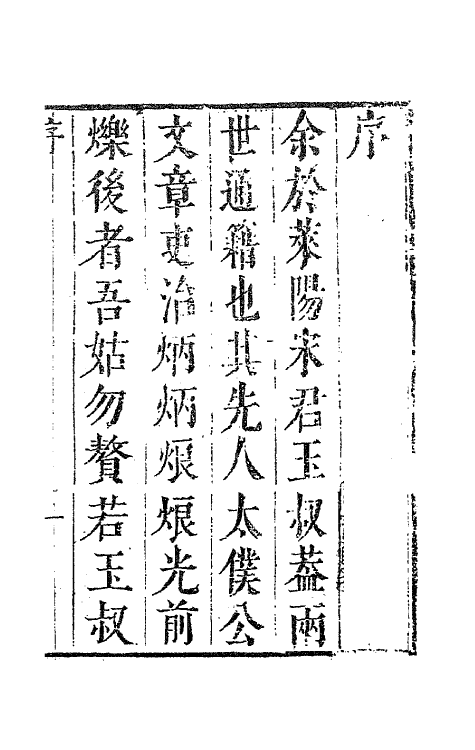 序
余於萊陽宋君玉叔葢兩
世通籍也其先人太僕公
文章吏治炳炳烺烺光前
爍後者吾姑勿贅若玉叔
序
一